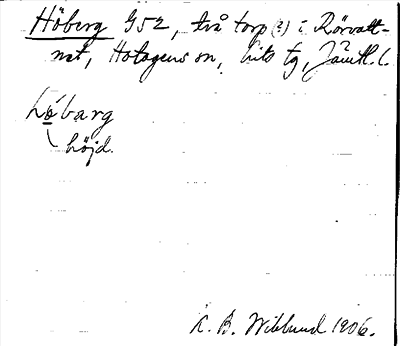 Höberg 952, två torp (?) i Rörvatt-
net, Hotagens sn, Lits tg, Jämtl. l.
hö́barg
höjd.
K. B. Wiklund 1906.